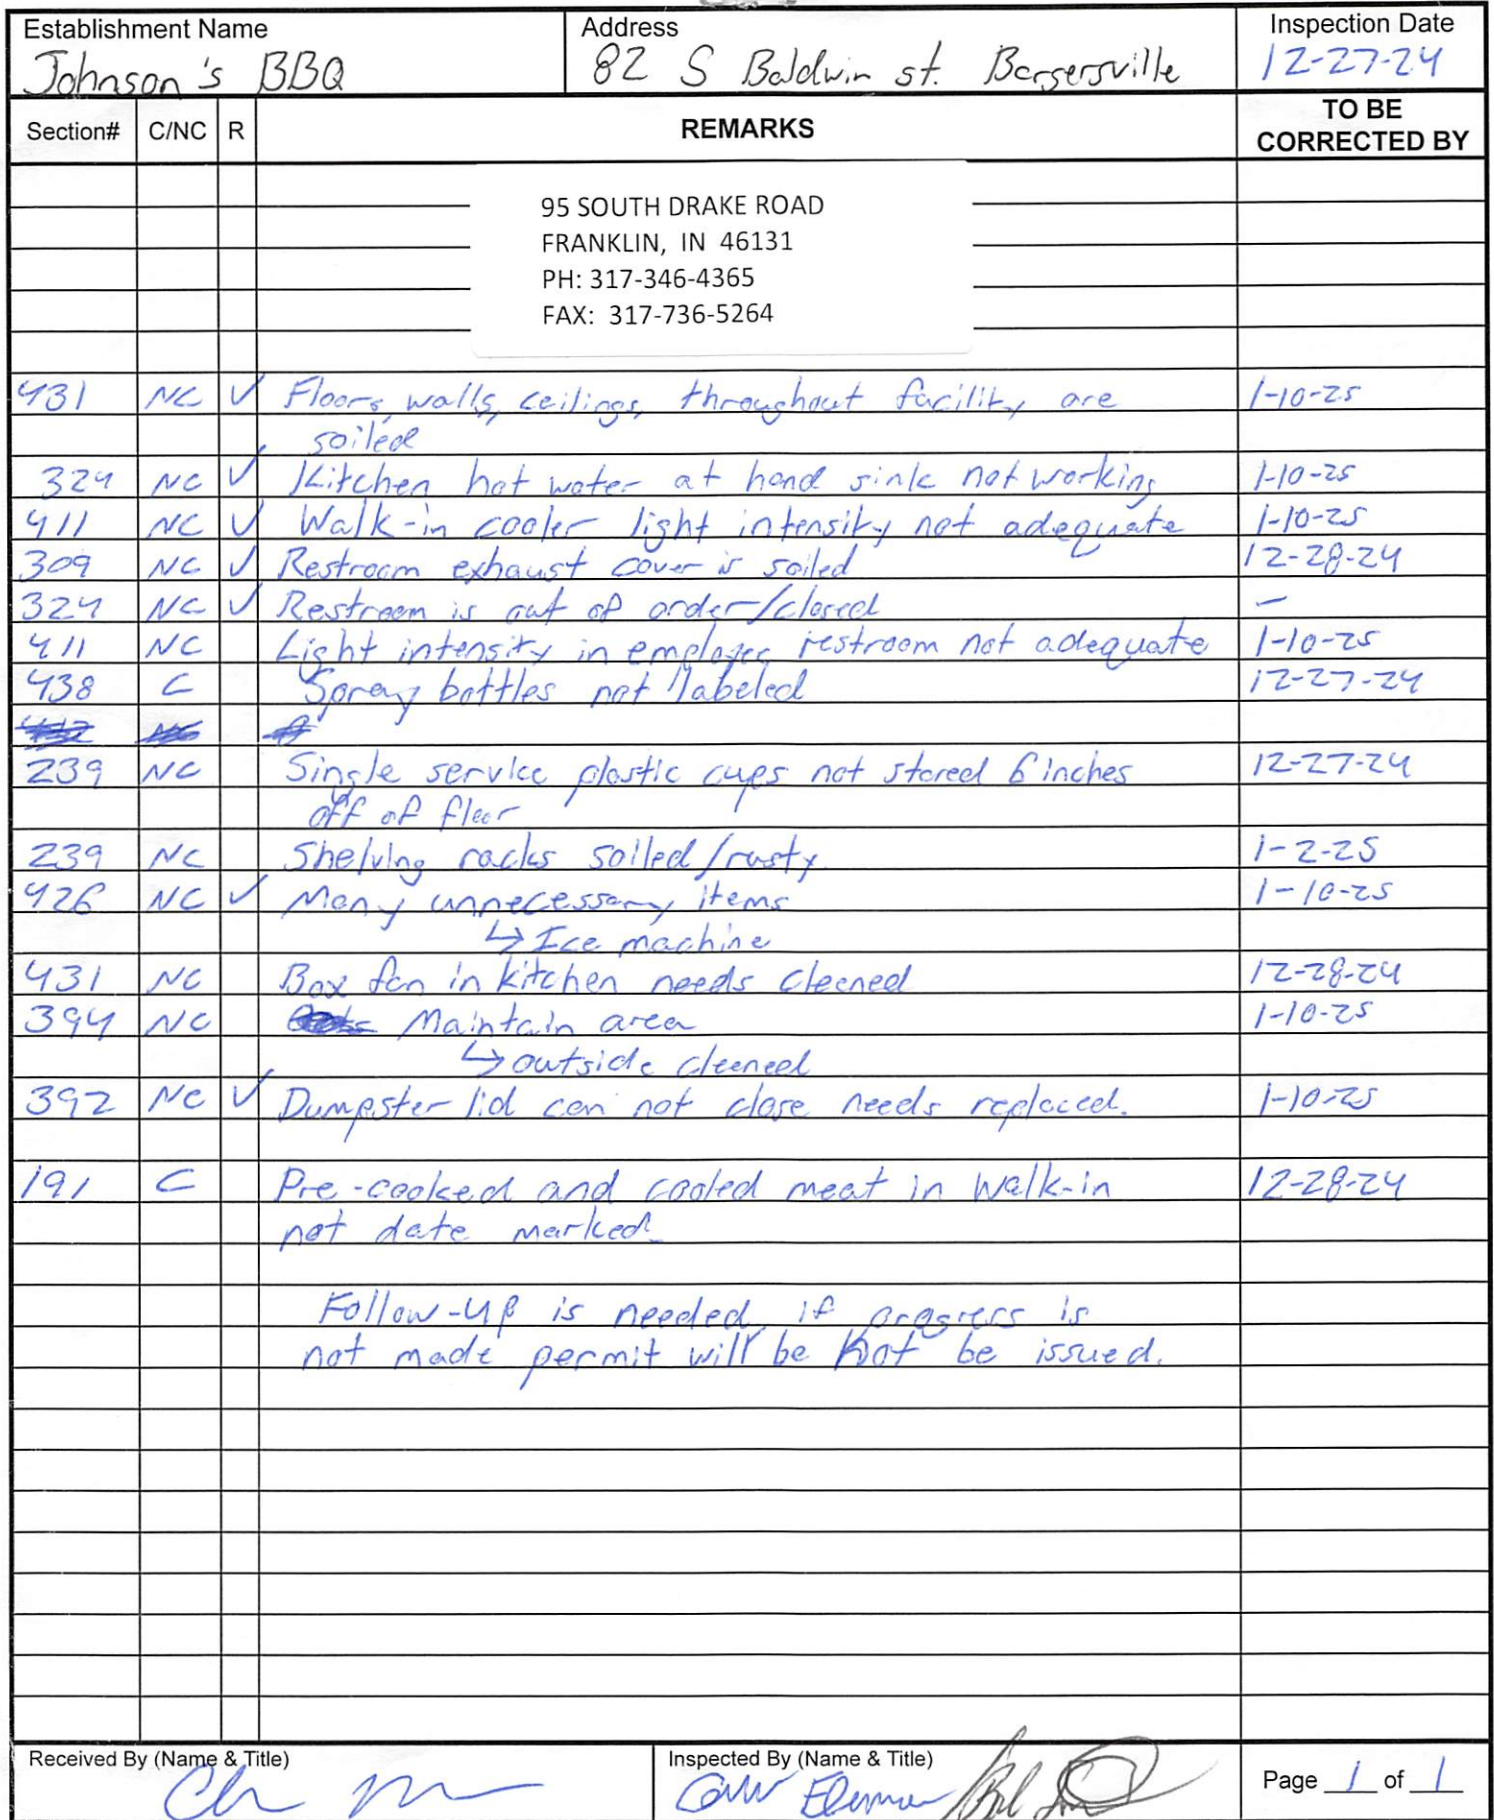 Establishment Name Address Inspection Date
Johnson's BBQ 82 S Baldwin st. Bargersville 12-27-24
Section# C/NC R REMARKS TO BE CORRECTED BY
95 SOUTH DRAKE ROAD
FRANKLIN, IN 46131
PH: 317-346-4365
FAX: 317-736-5264
431 NC ✓ Floors, walls, ceilings, throughout facility are 1-10-25
soiled
324 NC ✓ Kitchen hot water at hand sink not working 1-10-25
411 NC ✓ Walk-in cooler light intensity not adequate 1-10-25
309 NC ✓ Restroom exhaust cover is soiled 12-28-24
324 NC ✓ Restroom is out of order/closed –
411 NC Light intensity in employee restroom not adequate 1-10-25
438 C Spray bottles not labeled 12-27-24
239 NC Single service plastic cups not stored 6 inches 12-27-24
off of floor
239 NC Shelving racks soiled/rusty 1-2-25
426 NC ✓ Many unnecessary items 1-10-25
↳ Ice machine
431 NC Box fan in kitchen needs cleaned 12-28-24
394 NC Maintain area 1-10-25
↳ outside cleaned
392 NC ✓ Dumpster lid can not close needs replaced. 1-10-25
191 C Pre-cooked and cooled meat in walk-in 12-28-24
not date marked
Follow-up is needed, if progress is
not made permit will be not be issued.
Received By (Name & Title) Inspected By (Name & Title) Page 1 of 1